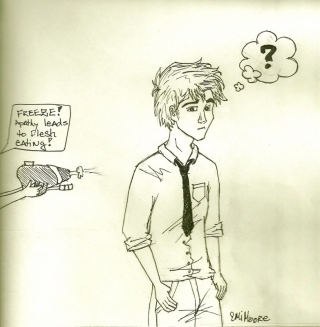 FREEZE!
Apathy leads
to flesh
eating!
?
EMiMOORE